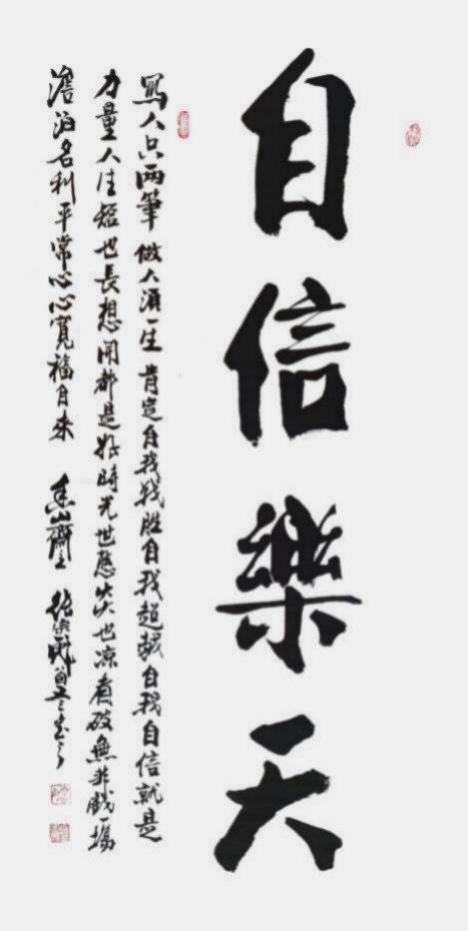 自信樂天
寫人只兩筆做人須一生肯定自我戰胜自我超越自我自信就是
力量人生短也長想開都是好時光世態炎也凉看破無非戲一場
澹泊名利平常心心寬福自來